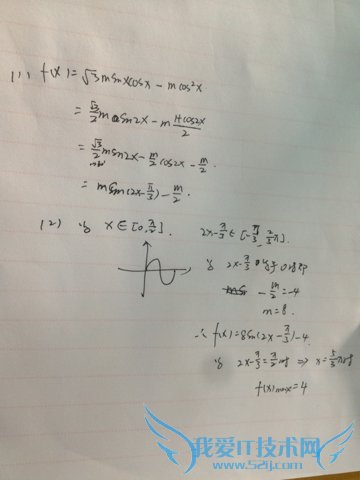 (1) f(x) = √3 m sinx cosx - m cos²x.
= √3/2 m sin2x - m (1+cos2x)/2
= √3/2 m sin2x - m/2 cos2x - m/2.
= m sin(2x - π/3) - m/2.
(2) 当 x ∈ [0, π/2]. 2x - π/3 ∈ [-π/3, 2/3π].
当 2x - π/3 等于 0 时即
- m/2 = -4
m = 8.
∴ f(x) = 8 sin(2x - π/3) - 4.
当 2x - π/3 = π/2 时 ⇒ x = 5/3 π 时
f(x)max = 4
我爱IT技术网
www.52ij.com